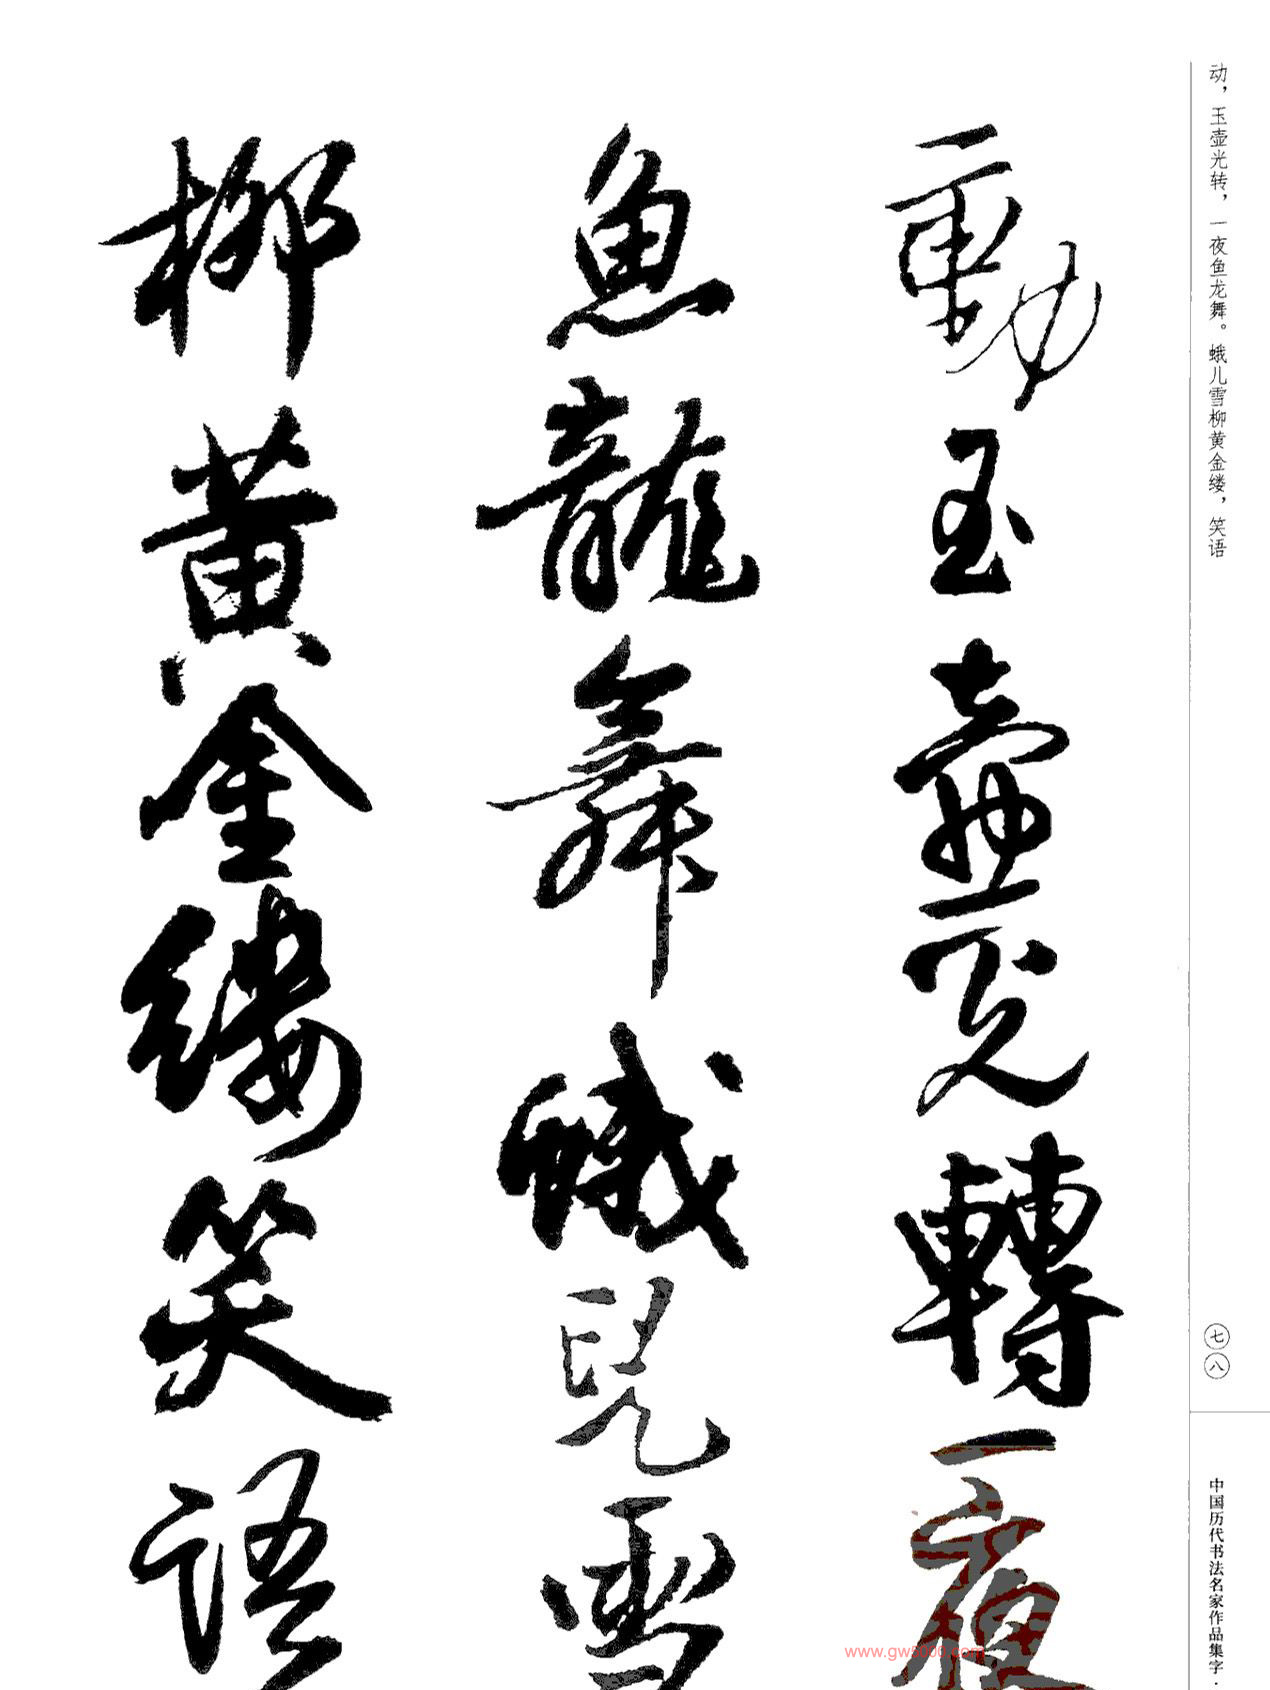 动，玉壶光转，一夜鱼龙舞。蛾儿雪柳黄金缕，笑语
七八
中国历代书法名家作品集字·
動玉壺光轉一夜
魚龍舞蛾兒雪
柳黄金縷笑語
www.gw5000.com